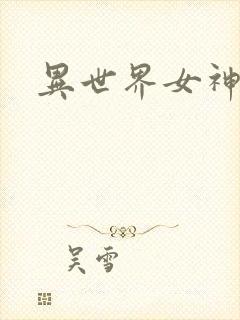 異世界女神
吴雪